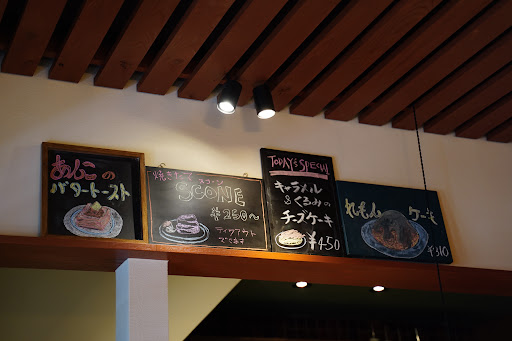 あんこの
バタートースト
焼きたて
スコーン
SCONE
¥250〜
テイクアウト
できます
TODAY'S SPECIAL
キャラメル
&くるみの
チーズケーキ
¥450
れもんケーキ
¥310